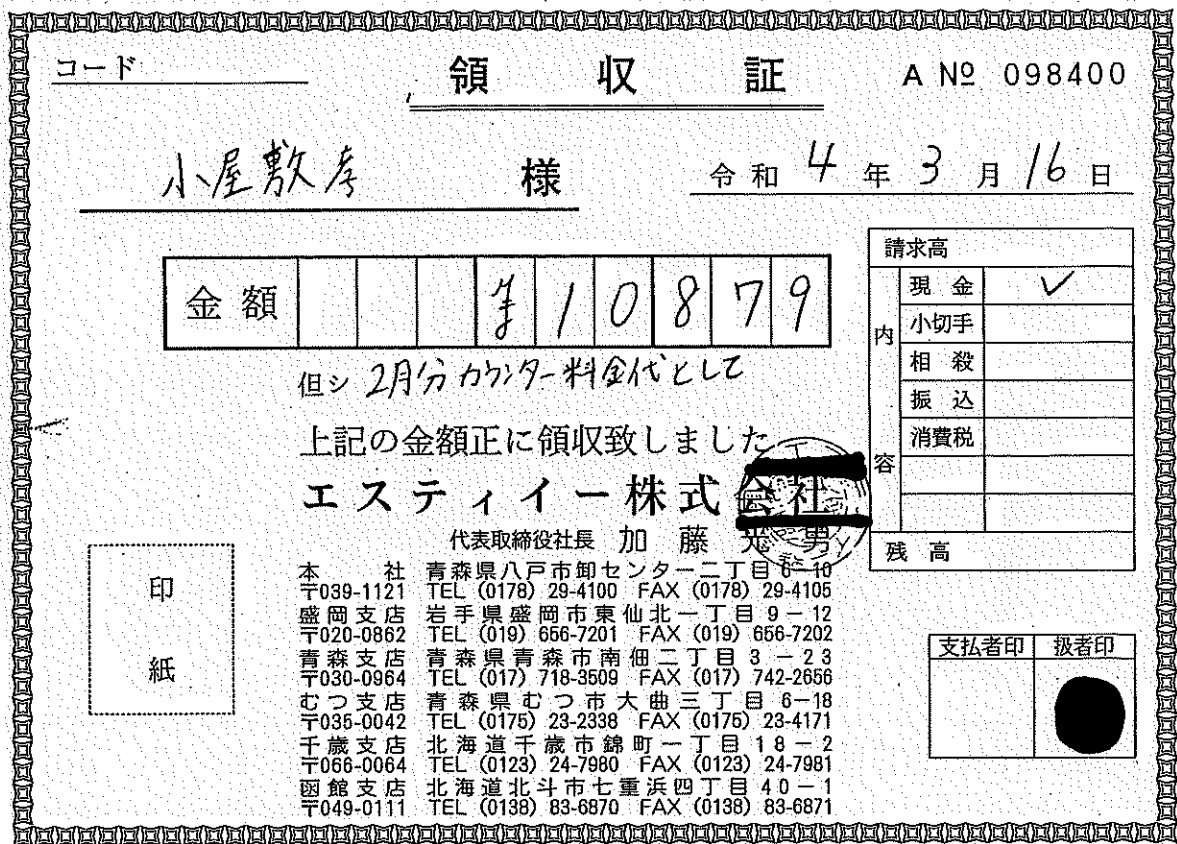 コード
領収証
A № 098400
小屋敷孝 様
令和 4 年 3 月 16 日
金額 ¥10879
但シ 2月分カウンター料金代として
上記の金額正に領収致しました
エスティイー株式会社
代表取締役社長 加藤光男
本社 青森県八戸市卸センター二丁目6-10
〒039-1121 TEL (0178) 29-4100 FAX (0178) 29-4105
盛岡支店 岩手県盛岡市東仙北一丁目9-12
〒020-0862 TEL (019) 656-7201 FAX (019) 656-7202
青森支店 青森県青森市南佃二丁目3-23
〒030-0964 TEL (017) 718-3509 FAX (017) 742-2656
むつ支店 青森県むつ市大曲三丁目6-18
〒035-0042 TEL (0175) 23-2338 FAX (0175) 23-4171
千歳支店 北海道千歳市錦町一丁目18-2
〒066-0064 TEL (0123) 24-7980 FAX (0123) 24-7981
函館支店 北海道北斗市七重浜四丁目40-1
〒049-0111 TEL (0138) 83-6870 FAX (0138) 83-6871
請求高
内容
現金 ✓
小切手
相殺
振込
消費税
残高
印紙
支払者印 扱者印